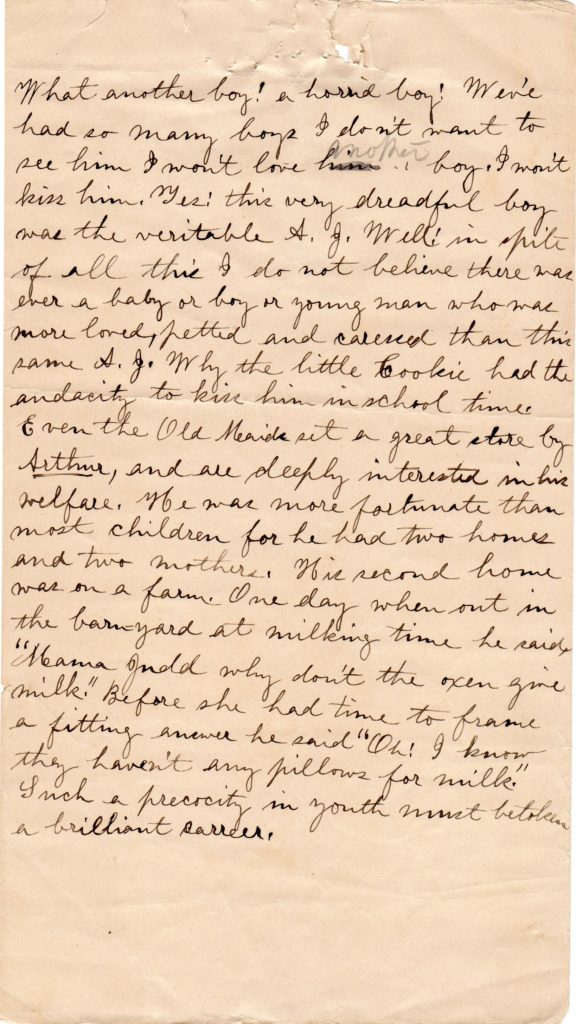 What another boy! a horrid boy! Wev'e
had so many boys I don't want to
see him I won't love him another boy. I won't
kiss him. Yes! this very dreadful boy
was the veritable A. J. Well! in spite
of all this I do not believe there was
ever a baby or boy or young man who was
more loved, petted and caressed than this
same A. J. Why the little Cookie had the
audacity to kiss him in school time.
Even the Old Maids set a great store by
Arthur, and are deeply interested in his
welfare. He was more fortunate than
most children for he had two homes
and two mothers. His second home
was on a farm. One day when out in
the barn-yard at milking time he said,
"Mama Judd why don't the oxen give
milk." Before she had time to frame
a fitting answer he said "Oh! I know
they haven't any pillows for milk."
Such a precocity in youth must betoken
a brilliant carreer.